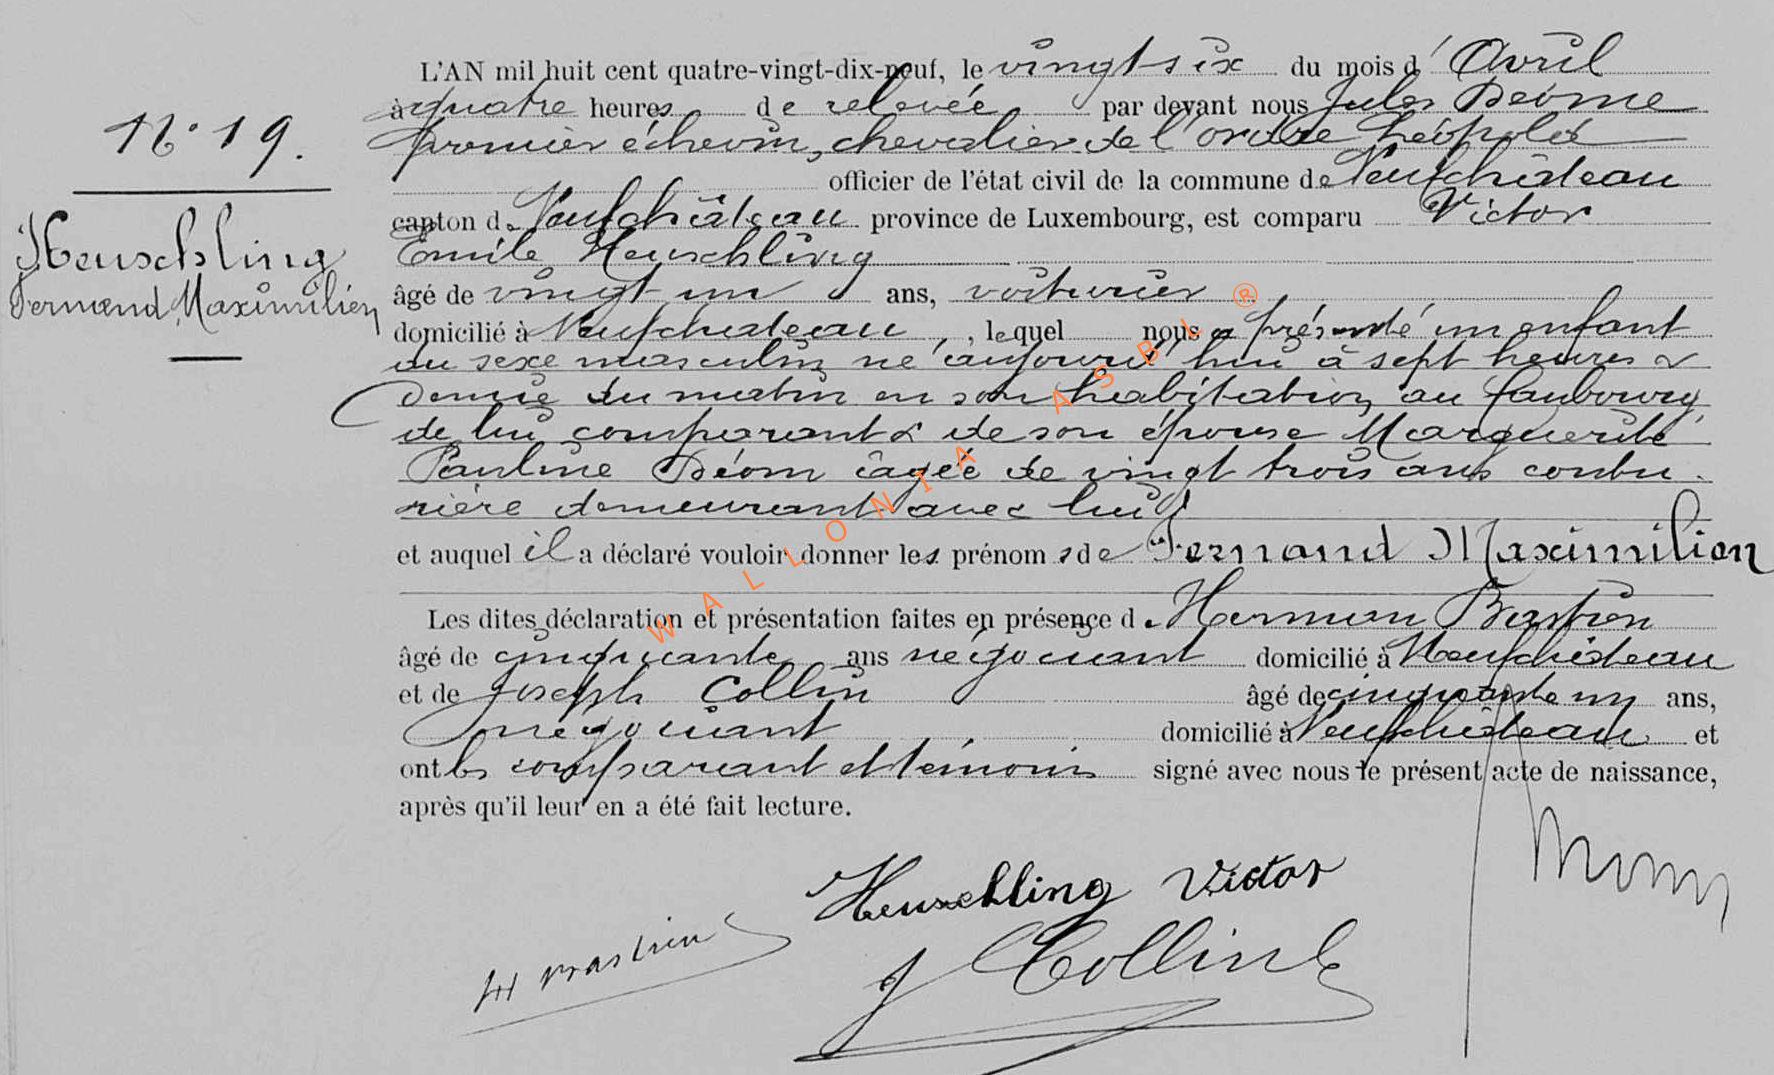 N° 19.
Heuschling
Fernand Maximilien
L'AN mil huit cent quatre-vingt-dix-neuf, le vingt six du mois d' Avril
à quatre heures de relevée par devant nous Jules
premier échevin, chevalier de l'ordre Léopold
officier de l'état civil de la commune de Neufchâteau
canton de Neufchâteau province de Luxembourg, est comparu Victor
Emile Heuschling
âgé de vingt un ans, voiturier
domicilié à Neufchateau, lequel nous a présenté un enfant
du sexe masculin né aujourd'hui à sept heures &
demie du matin en son habitation au faubourg,
de lui comparant & de son épouse Marguerite
Pauline Déom âgée de vingt trois ans coutu-
rière demeurant avec lui
et auquel il a déclaré vouloir donner les prénoms de Fernand Maximilien
Les dites déclaration et présentation faites en présence de Herman Bastien
âgé de cinquante ans négociant domicilié à Neufchâteau
et de Joseph Collin âgé de cinquante un ans,
négociant domicilié à Neufchâteau et
ont les comparant et témoins signé avec nous le présent acte de naissance,
après qu'il leur en a été fait lecture.
Heuschling Victor
H Bastien
J Collin
WALLONIA ASBL ®